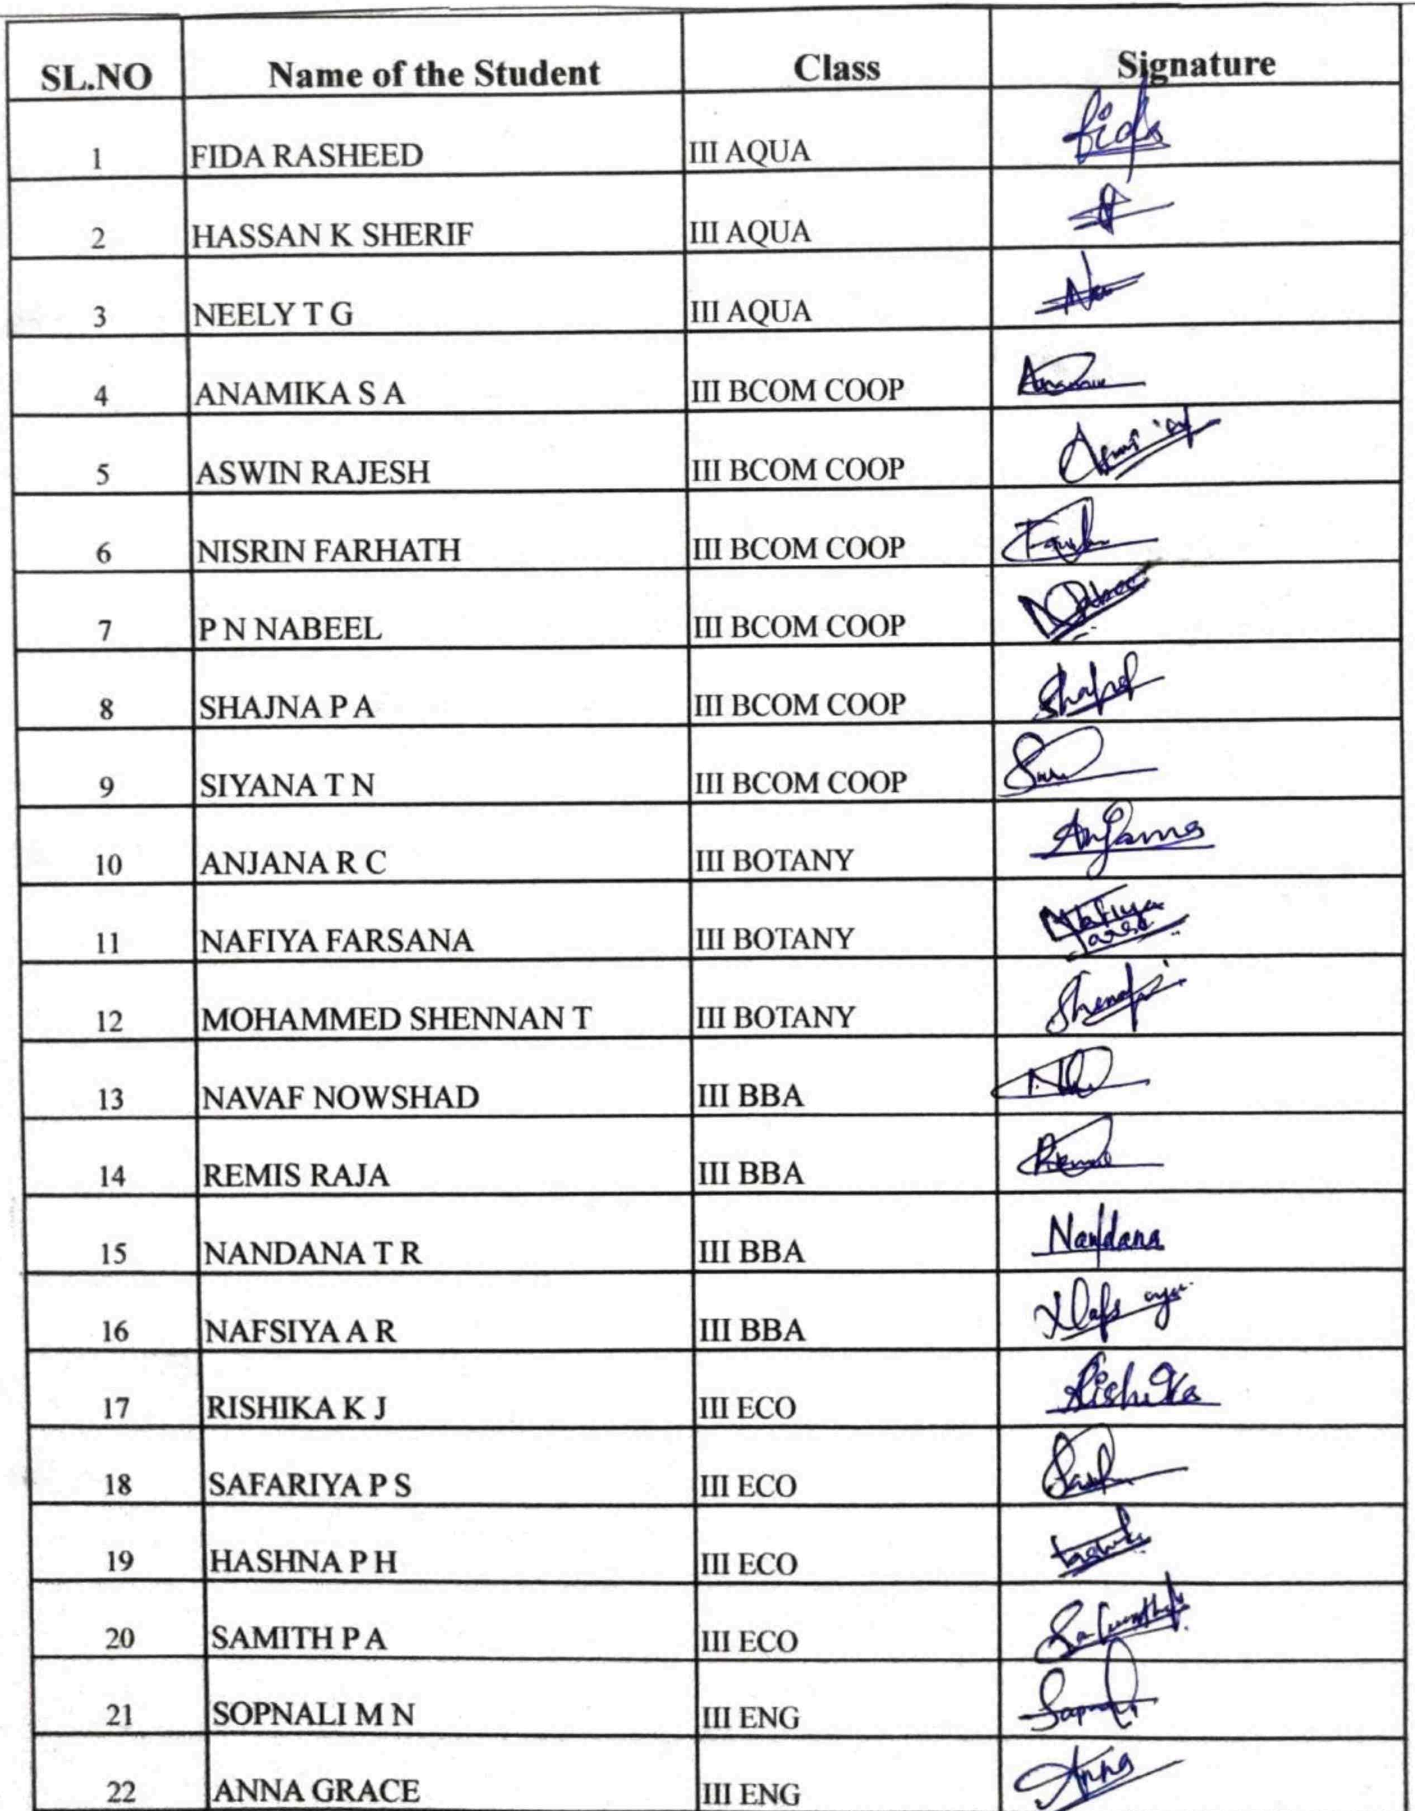 SL.NO Name of the Student Class Signature
1 FIDA RASHEED III AQUA fida
2 HASSAN K SHERIF III AQUA
3 NEELY T G III AQUA
4 ANAMIKA S A III BCOM COOP
5 ASWIN RAJESH III BCOM COOP
6 NISRIN FARHATH III BCOM COOP
7 P N NABEEL III BCOM COOP
8 SHAJNA P A III BCOM COOP
9 SIYANA T N III BCOM COOP
10 ANJANA R C III BOTANY Anjana
11 NAFIYA FARSANA III BOTANY
12 MOHAMMED SHENNAN T III BOTANY
13 NAVAF NOWSHAD III BBA
14 REMIS RAJA III BBA
15 NANDANA T R III BBA Nandana
16 NAFSIYA A R III BBA
17 RISHIKA K J III ECO Rishika
18 SAFARIYA P S III ECO
19 HASHNA P H III ECO
20 SAMITH P A III ECO
21 SOPNALI M N III ENG
22 ANNA GRACE III ENG Anna